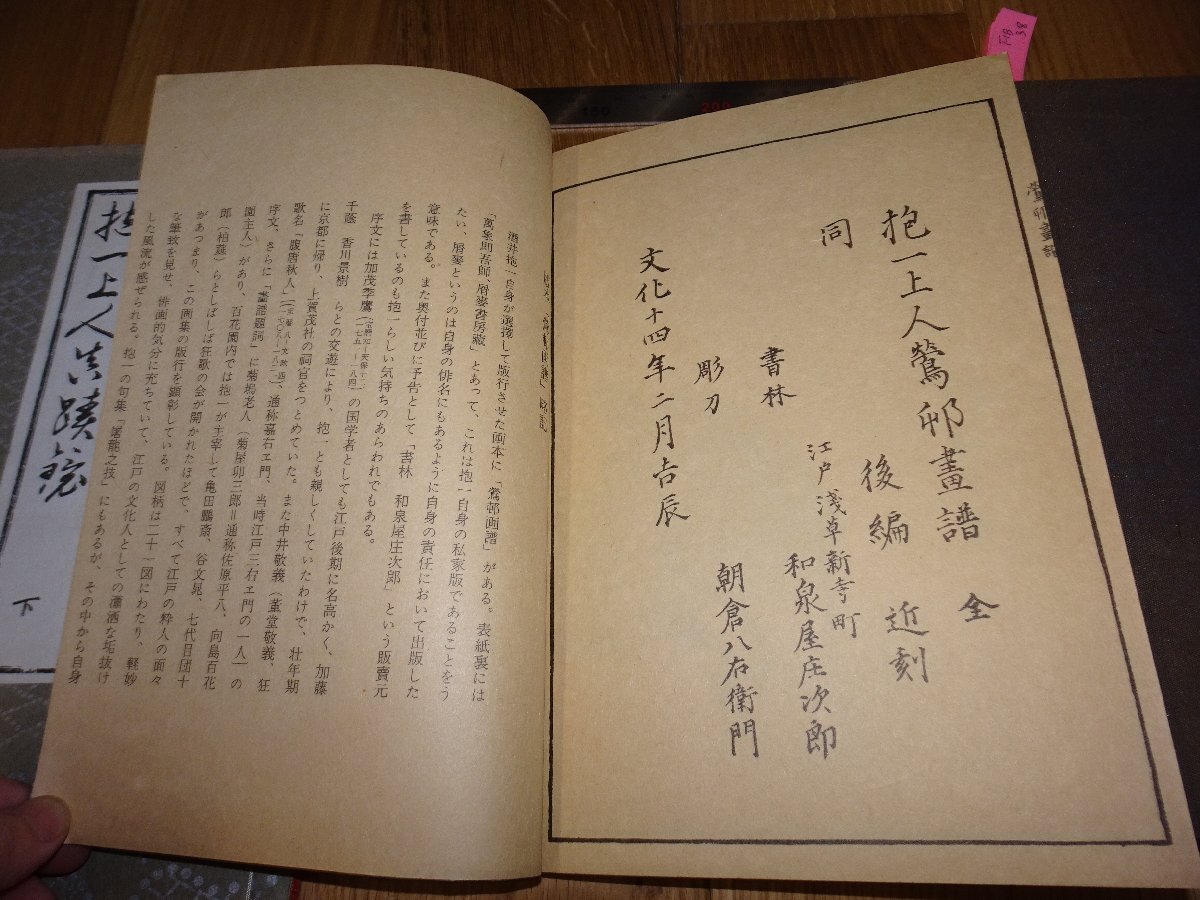 抱一上人鶯邨畫譜 全
同 後編 近刻
書林 江戸淺草新寺町
和泉屋庄次郎
彫刀 朝倉八右衛門
文化十四年二月吉辰
酒井抱一自身が選擇して版行させた画本に「鶯邨画譜」がある。表紙裏には
「萬象則吾師、屠麥書房藏」とあって、これは抱一自身の私家版であることをう
たい、屠麥というのは自身の俳名にもあるように自身の責任において出版した
意味である。また奥付並びに予告として「書林 和泉屋庄次郎」という販賣元
を書しているのも抱一らしい気持ちのあらわれでもある。
序文には加茂季鷹
の国学者としても江戸後期に名高かく、加藤
千蔭 香川景樹 らとの交遊により、抱一とも親しくしていたわけで、壮年期
に京都に帰り、上賀茂社の祠官をつとめていた。また中井敬義(菫堂敬義、狂
歌名「腹唐秋人」通称嘉右ヱ門、当時江戸三右ヱ門の一人)の
序文、さらに「畫譜題詞」に菊塢老人(菊屋卯三郎=通称佐原平八、向島百花
園主人)があり、百花園内では抱一が主宰して亀田鵬斎、谷文晁、七代目団十
郎(柏莚)らとしばしば狂歌の会が開かれたほどで、すべて江戸の粋人の面々
があつまり、この画集の版行を顕彰している。図柄は二十一図にわたり、軽妙
な筆致を見せ、俳画的気分に充ちていて、江戸の文化人としての瀟洒な垢抜け
した風流が感ぜられる。抱一の句集「屠龍之技」にもあるが、その中から自身
抱一上人真蹟鏡
下
200